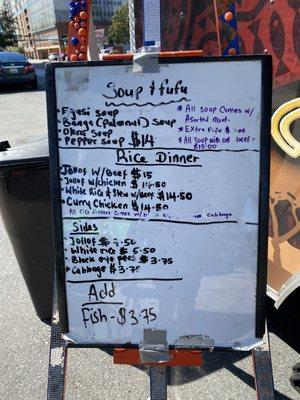 Soup & fufu
Egusi soup
Banga (Palmnut) Soup
Okra Soup
Pepper Soup $14
* All Soup Comes w/
Assorted Meat.
* Extra Fufu
* All Soup with cat beef-
Rice Dinner
Jollof w/Beef $15
Jollof w/chicken $14.50
White Rice & Stew w/Beef $14.50
Curry Chicken $14.50
All rice dinners comes w/ Cabbage
Sides
Jollof $7.50
White rice $5.50
Black eye peas $3.75
Cabbage $3.75
Add
Fish - $3.75